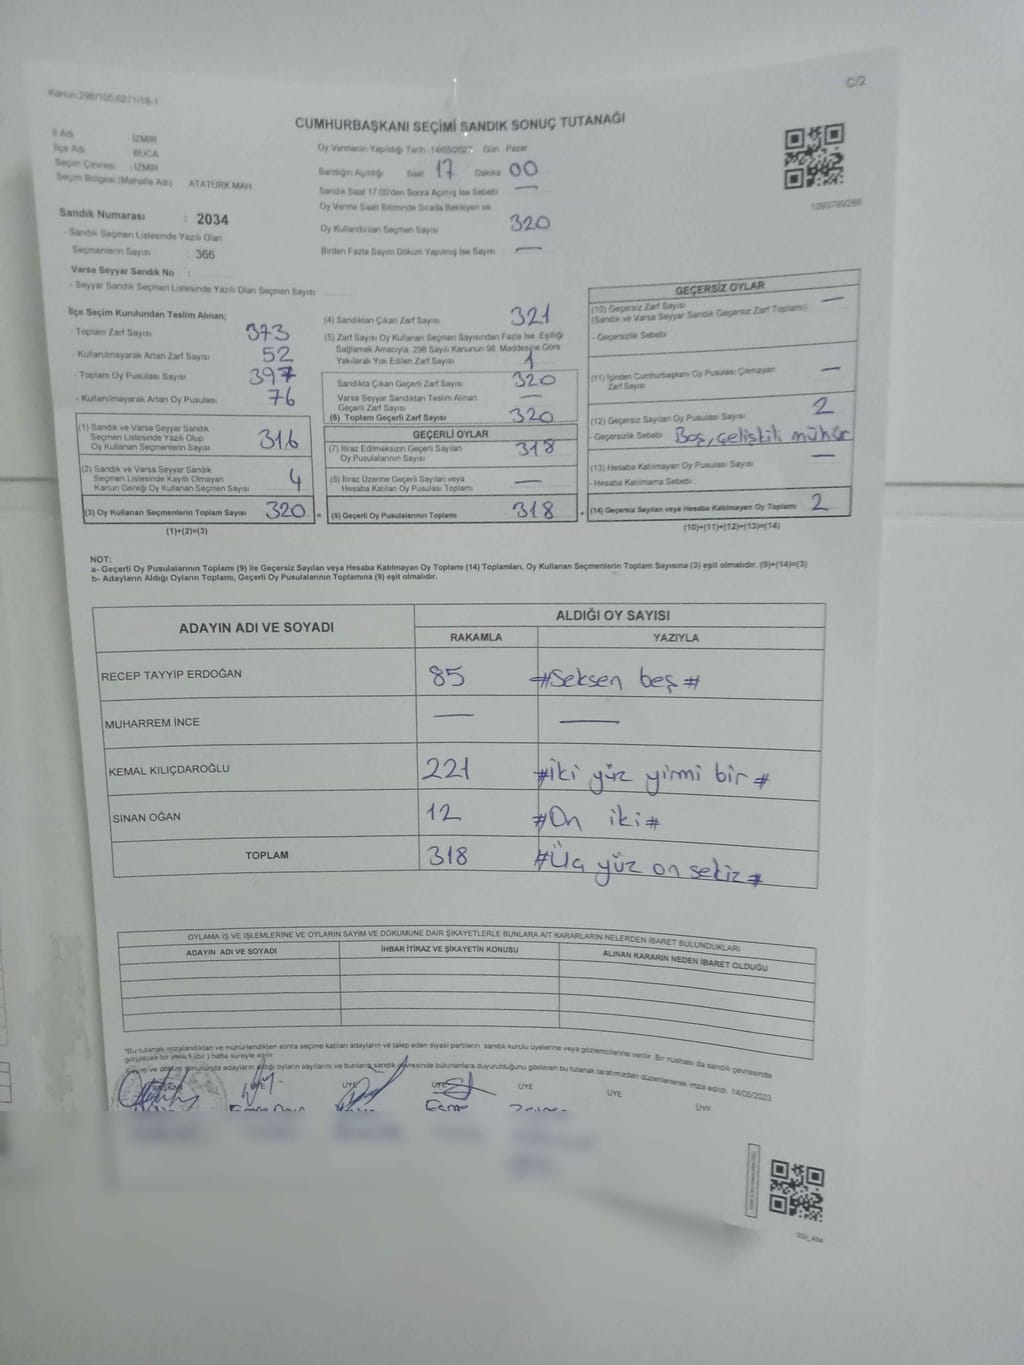 C/2
Kanun:298/105;6271/18-1
CUMHURBAŞKANI SEÇİMİ SANDIK SONUÇ TUTANAĞI
İl Adı İZMİR
İlçe Adı BUCA
Seçim Çevresi : İZMİR
Seçim Bölgesi (Mahalle Adı) ATATÜRK MAH.
Sandık Numarası : 2034
- Sandık Seçmen Listesinde Yazılı Olan
Seçmenlerin Sayısı : 366
Varsa Seyyar Sandık No :
- Seyyar Sandık Seçmen Listesinde Yazılı Olan Seçmen Sayısı
Oy Vermenin Yapıldığı Tarih :14/05/2023 Gün : Pazar
Sandığın Açıldığı Saat 17 Dakika 00
Sandık Saat 17.00'den Sonra Açılmış İse Sebebi —
Oy Verme Saati Bitiminde Sırada Bekleyen ve
Oy Kullandırılan Seçmen Sayısı 320
Birden Fazla Sayım Döküm Yapılmış İse Sayısı —
1093789266
İlçe Seçim Kurulundan Teslim Alınan;
- Toplam Zarf Sayısı 373
- Kullanılmayarak Artan Zarf Sayısı 52
- Toplam Oy Pusulası Sayısı 397
- Kullanılmayarak Artan Oy Pusulası 76
(1) Sandık ve Varsa Seyyar Sandık
Seçmen Listesinde Yazılı Olup
Oy Kullanan Seçmenlerin Sayısı 316
(2) Sandık ve Varsa Seyyar Sandık
Seçmen Listesinde Kayıtlı Olmayan
Kanun Gereği Oy Kullanan Seçmen Sayısı 4
(3) Oy Kullanan Seçmenlerin Toplam Sayısı 320 =
(1)+(2)=(3)
(4) Sandıktan Çıkan Zarf Sayısı 321
(5) Zarf Sayısı Oy Kullanan Seçmen Sayısından Fazla İse, Eşitliği
Sağlamak Amacıyla, 298 Sayılı Kanunun 98. Maddesine Göre
Yakılarak Yok Edilen Zarf Sayısı 1
Sandıkta Çıkan Geçerli Zarf Sayısı 320
Varsa Seyyar Sandıktan Teslim Alınan
Geçerli Zarf Sayısı —
(6) Toplam Geçerli Zarf Sayısı 320
GEÇERLİ OYLAR
(7) İtiraz Edilmeksizin Geçerli Sayılan
Oy Pusulalarının Sayısı 318
(8) İtiraz Üzerine Geçerli Sayılan veya
Hesaba Katılan Oy Pusulası Toplamı —
(9) Geçerli Oy Pusulalarının Toplamı 318 +
GEÇERSİZ OYLAR
(10) Geçersiz Zarf Sayısı —
(Sandık ve Varsa Seyyar Sandık Geçersiz Zarf Toplamı)
- Geçersizlik Sebebi:
(11) İçinden Cumhurbaşkanı Oy Pusulası Çıkmayan
Zarf Sayısı —
(12) Geçersiz Sayılan Oy Pusulası Sayısı 2
- Geçersizlik Sebebi : Boş, çelişkili mühür
(13) Hesaba Katılmayan Oy Pusulası Sayısı —
- Hesaba Katılmama Sebebi :
(14) Geçersiz Sayılan veya Hesaba Katılmayan Oy Toplamı 2
(10)+(11)+(12)+(13)=(14)
NOT:
a- Geçerli Oy Pusulalarının Toplamı (9) ile Geçersiz Sayılan veya Hesaba Katılmayan Oy Toplamı (14) Toplamları, Oy Kullanan Seçmenlerin Toplam Sayısına (3) eşit olmalıdır. (9)+(14)=(3)
b- Adayların Aldığı Oyların Toplamı, Geçerli Oy Pusulalarının Toplamına (9) eşit olmalıdır.
ADAYIN ADI VE SOYADI ALDIĞI OY SAYISI
RAKAMLA YAZIYLA
RECEP TAYYİP ERDOĞAN 85 #Seksen beş#
MUHARREM İNCE — —
KEMAL KILIÇDAROĞLU 221 #İki yüz yirmi bir#
SİNAN OĞAN 12 #On iki#
TOPLAM 318 #Üç yüz on sekiz#
OYLAMA İŞ VE İŞLEMLERİNE VE OYLARIN SAYIM VE DÖKÜMÜNE DAİR ŞİKAYETLERLE BUNLARA AİT KARARLARIN NELERDEN İBARET BULUNDUKLARI
ADAYIN ADI VE SOYADI İHBAR İTİRAZ VE ŞİKAYETİN KONUSU ALINAN KARARIN NEDEN İBARET OLDUĞU
*Bu tutanak, imzalandıktan ve mühürlendikten sonra seçime katılan adayların ve talep eden siyasi partilerin sandık kurulu üyelerine veya gözlemcilerine verilir. Bir nüshası da sandık çevresinde
görülecek bir yere 1 (bir) hafta süreyle asılır
Sayım ve döküm sonucunda adayların aldığı oyların sayılarını ve bunların sandık çevresinde bulunanlara duyurulduğunu gösteren bu tutanak tarafımızdan düzenlenerek imza edildi. 14/05/2023
BAŞKAN ÜYE ÜYE ÜYE ÜYE ÜYE ÜYE